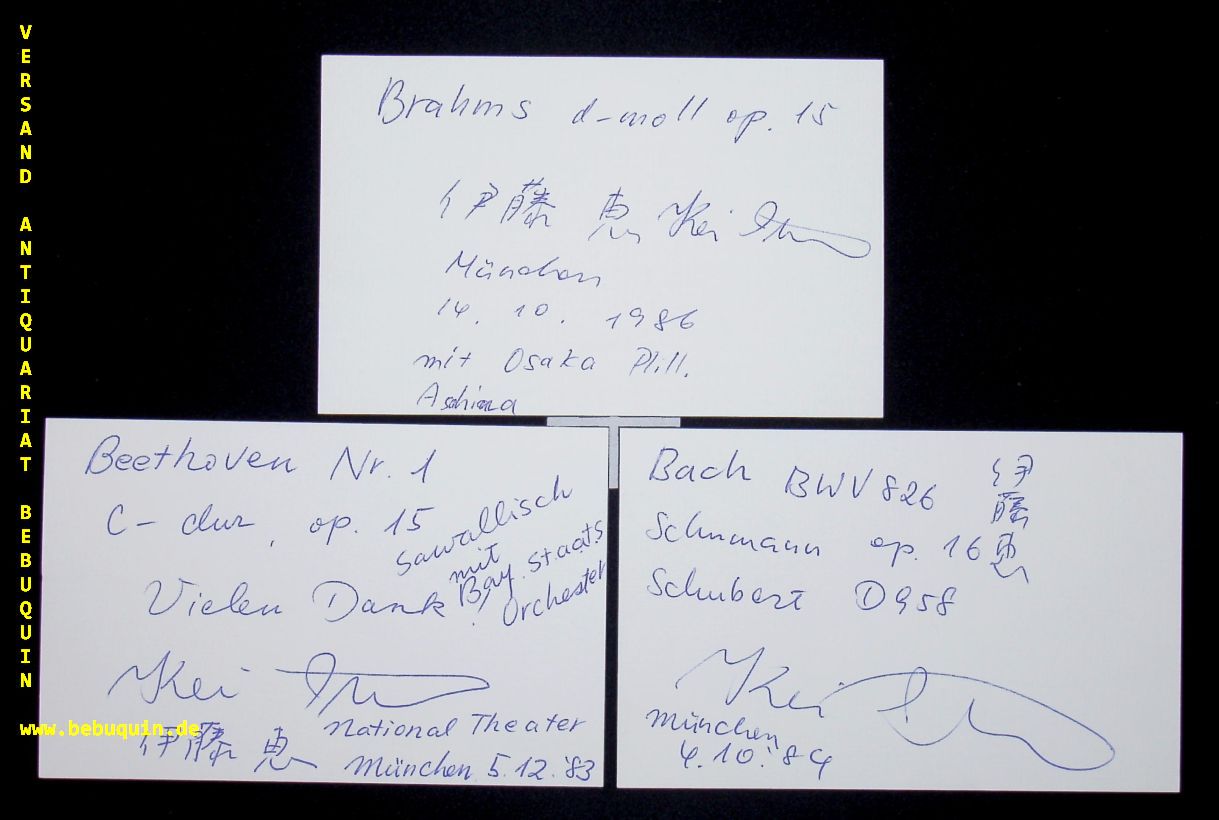 VERSAND ANTIQUARIAT BEBUQUIN
www.bebuquin.de
Brahms d-moll op. 15
伊藤 恵 Kei Ito
München
14. 10. 1986
mit Osaka Phill.
Asahina
Beethoven Nr. 1
C-dur, op. 15
Sawallisch
mit
Bay. Staats
Orchester
Vielen Dank!
Kei Ito
National Theater
伊藤 恵 München 5.12.'83
Bach BWV 826
伊藤恵
Schumann op. 16
Schubert D958
Kei Ito
München
4.10.'84